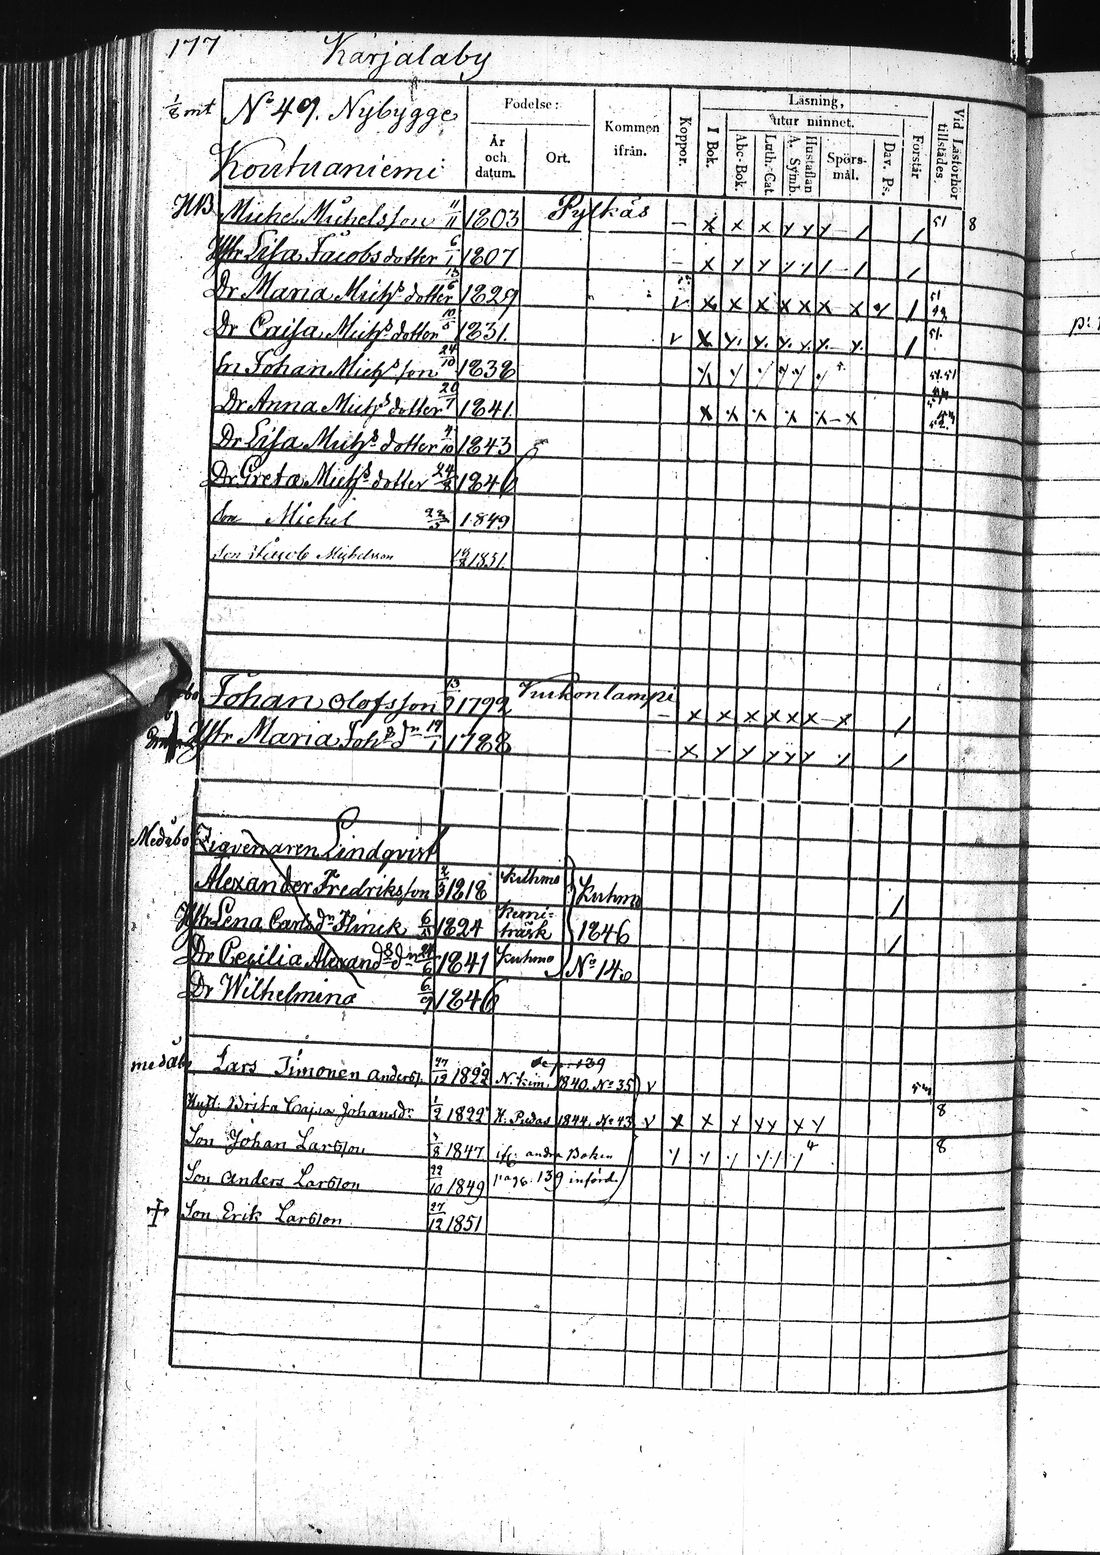 177 Karjalaby
1/6 mt No 49. Nybygge
Kontuaniemi
Födelse:
År och datum.
Ort.
Kommen ifrån.
Koppor.
Läsning,
utur minnet.
I Bok.
Abc-Bok.
Luth. Cat.
A. Symb.
Hustaflan
Spörs-mål.
Dav. Ps.
Förstår
Vid Läsförhör tillstädes.
Michel Michelsson 11/11 1803 Pylkäs — x x x y y y — / / 51 8
Hstr Lisa Jacobsdotter 6/1 1807 — x y y y / / — / /
Dr Maria Michs dotter 1829 v x x x x x x x /
Dr Caisa Michs dotter 10/5 1831. v x y. y. y. y. y. y. / 51.
Sn Johan Michs son 24/10 1838
Dr Anna Michs dotter 20/7 1841. x x x x x — x
Dr Lisa Michs dotter 4/10 1843
Dr Greta Michs dotter 24/8 1846
Son Michel 1849
Son Jacob Michelsson 1851.
Johan Olofsson 13/9 1792 — x x x x x x — x /
Hstr Maria Johs dn 19/1 1788 — x y y y y y y /
Medåbo Zigenaren Lindqvist
Alexander Fredriksson 2/3 1818 Kuhmo Kuhmo /
Hstr Lena Carlsdn Flinck 1824 Kemi-träsk 1846 /
Dr Cecilia Alexandsdn 24/6 1841 Kuhmo No 14.
Dr Wilhelmina 6/9 1846
medåbo Lars Timonen Anderss. 1822 N. Kim. 1840. No 35 v
Hust. Brita Cajsa Johansdr 1/2 1822 1844. No 43 v x x x y y x y 8
Son Johan Larsson 1847 andra Boken 8
Son Anders Larsson 22/10 1849 pag. 139 införd.
Son Erik Larsson 27/12 1851